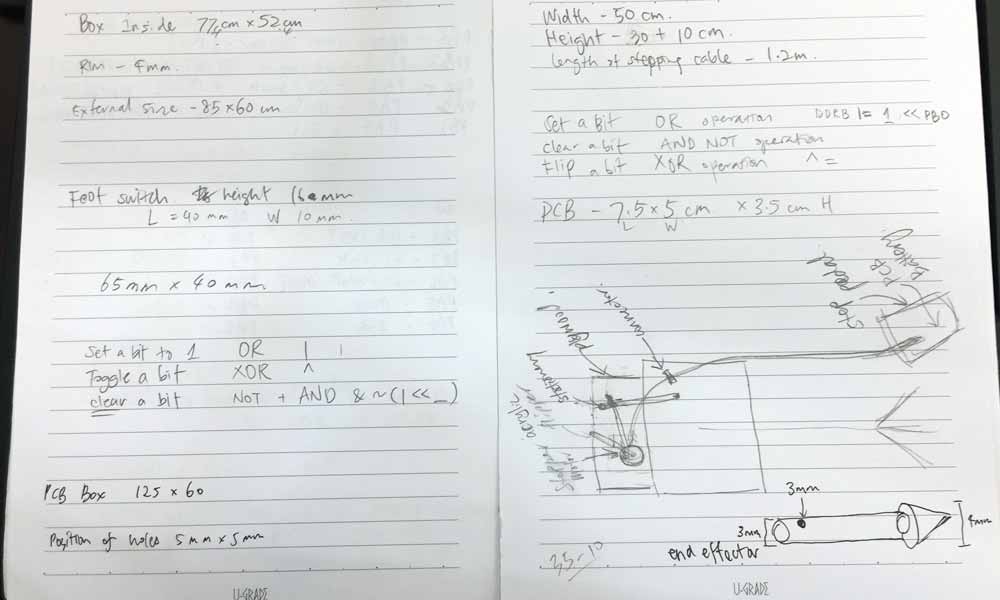 Box Inside 77cm x 52cm
Rim - 4mm.
External Size - 85x60cm
Foot switch height 16mm
L = 40mm W 10mm.
65mm x 40mm
Set a bit to 1 OR |
Toggle a bit XOR ^
clear a bit NOT + AND & ~(1<<_)
PCB Box 125 x 60
Position of holes 5mm x 5mm
U-GRADE
Width - 50 cm.
Height - 30 + 10 cm.
Length of stepping cable - 1.2m.
Set a bit OR operation DDRB |= 1 << PB0
clear a bit AND NOT operation
Flip a bit XOR operation ^ =
PCB - 7.5 x 5 cm x 3.5 cm H
L W
Battery
PCB
Stop pedal
connector.
plywood.
stationary
acrylic
Stepper
Motor
3mm
3mm
4mm
end effector
35-10
U-GRADE